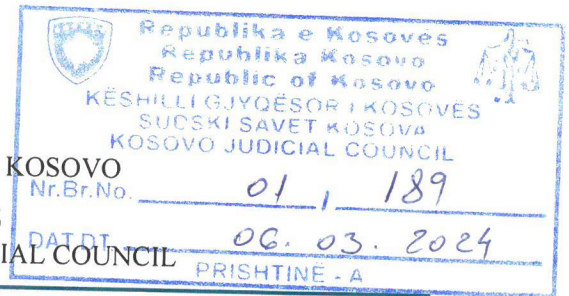 Republika e Kosovës
Republika Kosovo
Republic of Kosovo
KËSHILLI GJYQËSOR I KOSOVËS
SUDSKI SAVET KOSOVA
KOSOVO JUDICIAL COUNCIL
KOSOVO
Nr.Br.No. 01 / 189
DAT.DT. 06. 03. 2024
IAL COUNCIL
PRISHTINË - A